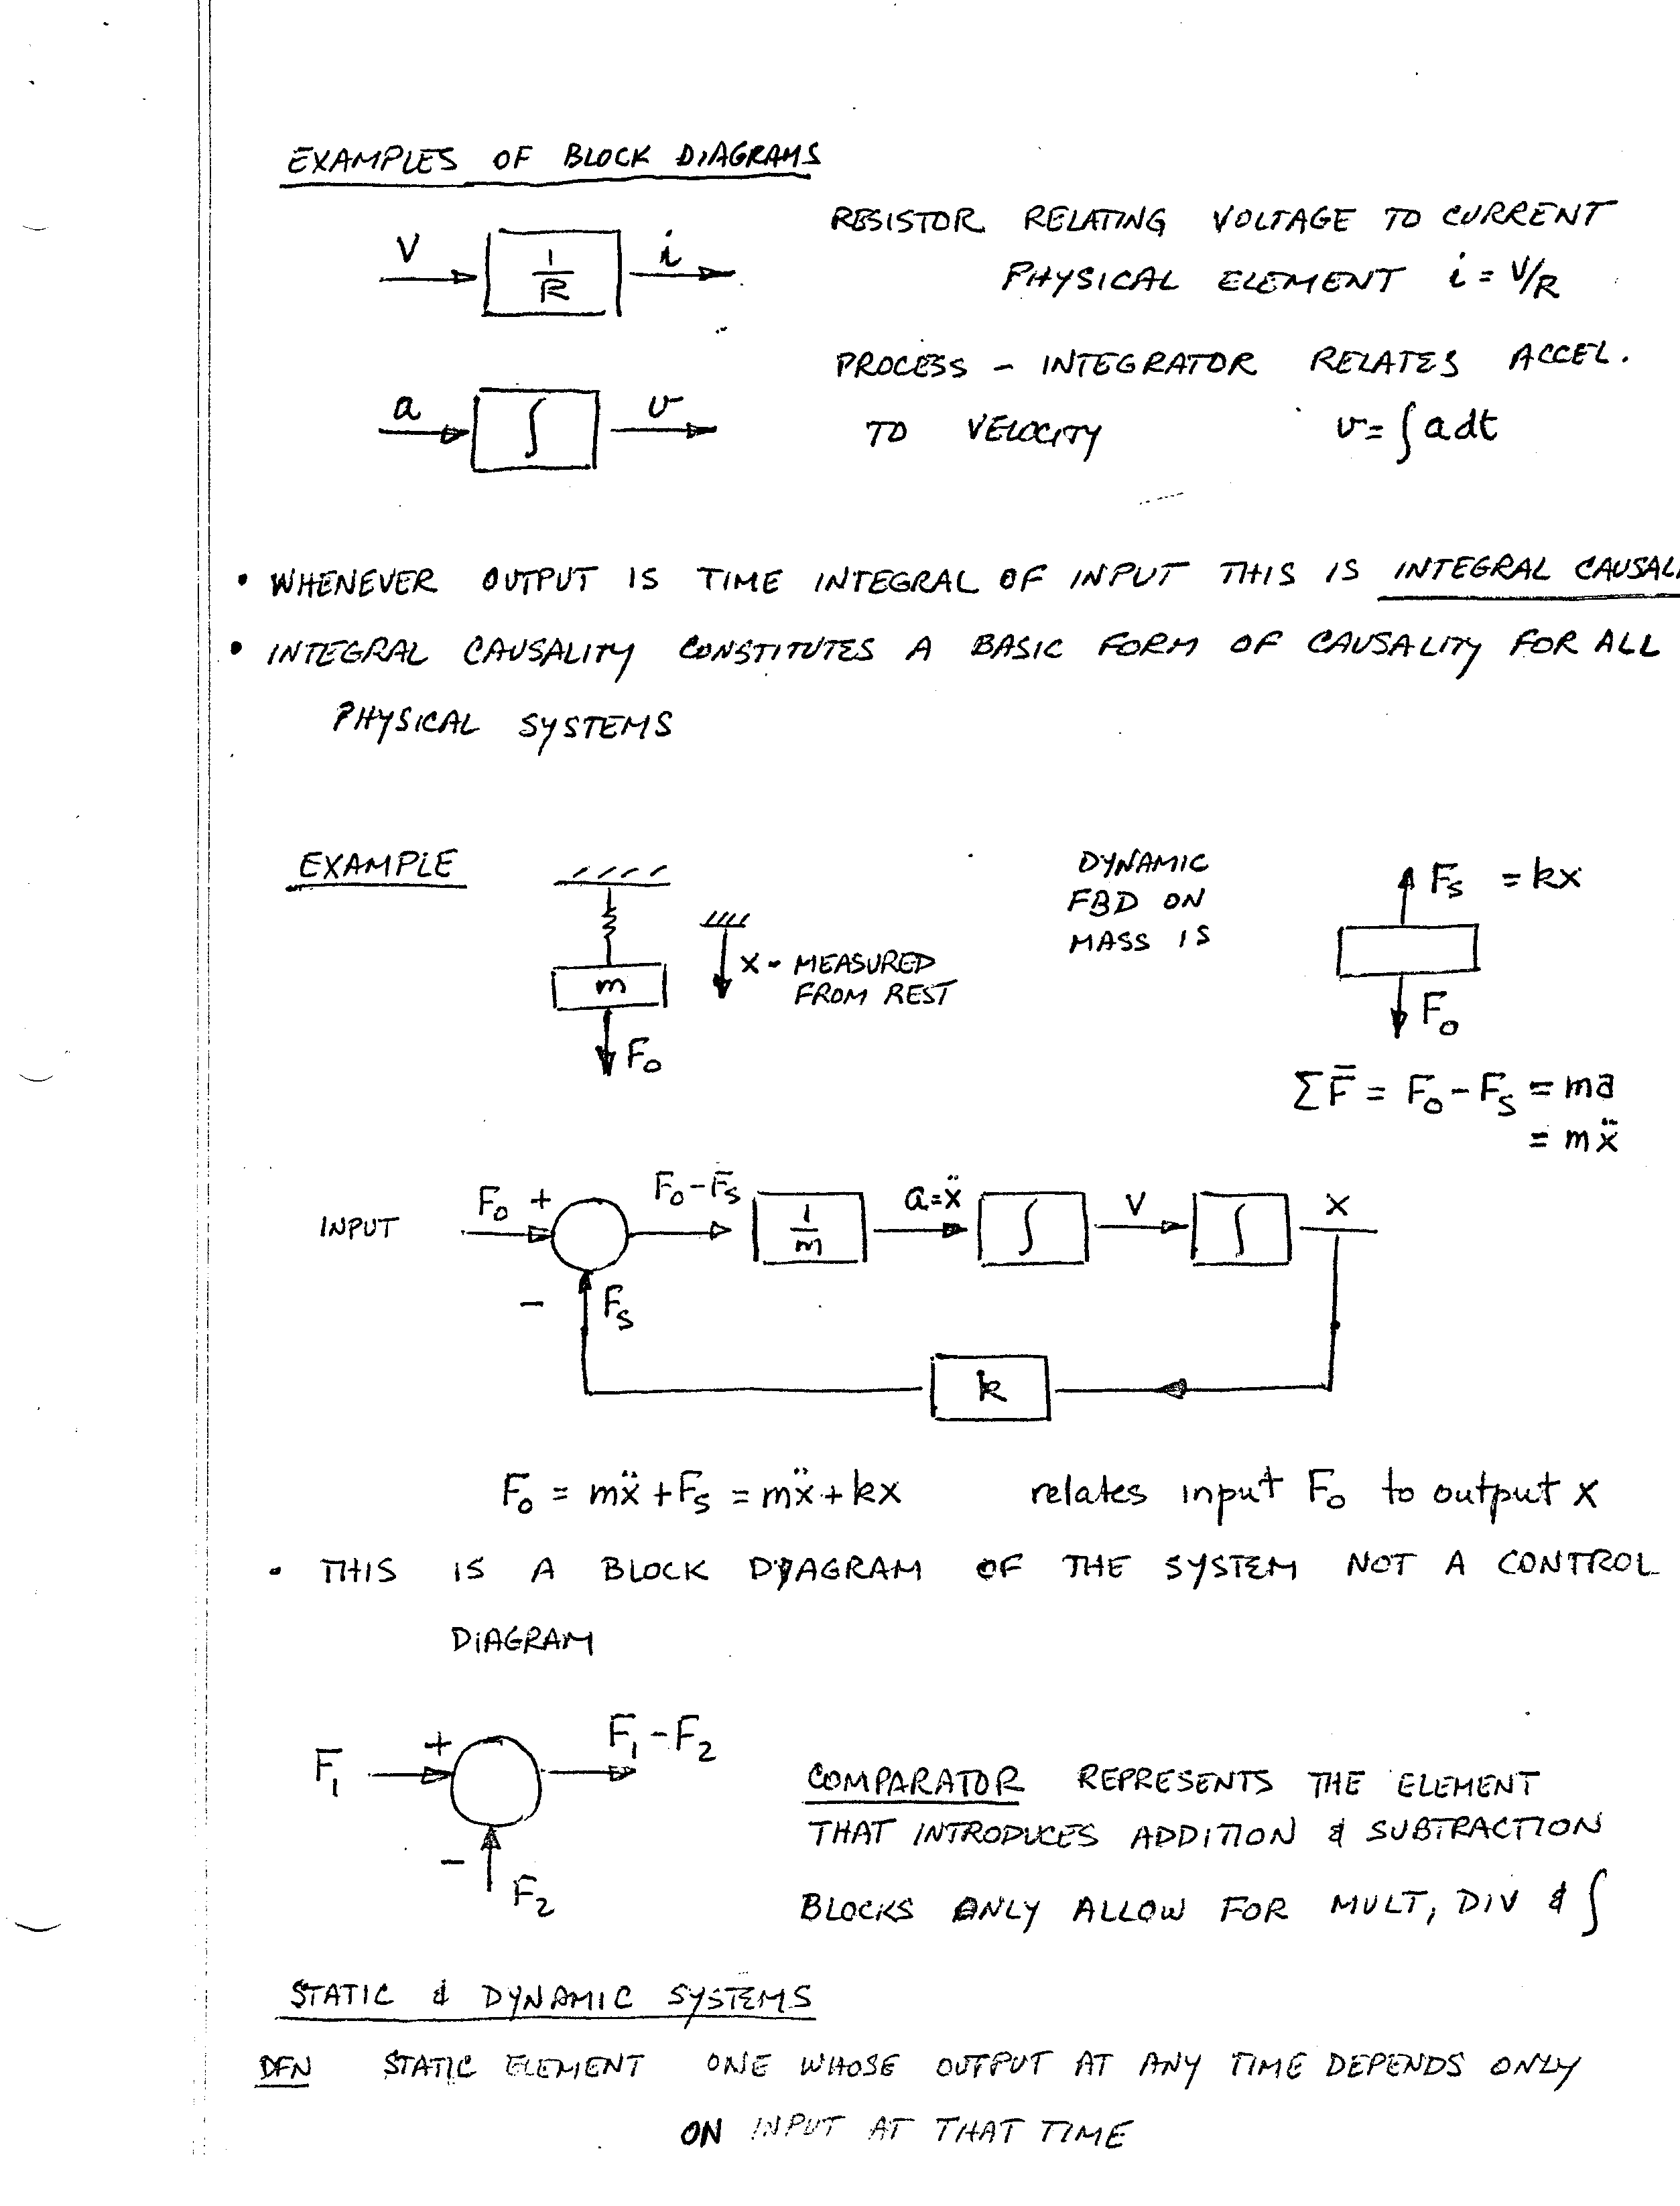 EXAMPLES OF BLOCK DIAGRAMS
V 1/R i
RESISTOR RELATING VOLTAGE TO CURRENT
PHYSICAL ELEMENT i = V/R
a ∫ v
PROCESS - INTEGRATOR RELATES ACCEL.
TO VELOCITY v = ∫ a dt
• WHENEVER OUTPUT IS TIME INTEGRAL OF INPUT THIS IS INTEGRAL CAUSALI
• INTEGRAL CAUSALITY CONSTITUTES A BASIC FORM OF CAUSALITY FOR ALL
PHYSICAL SYSTEMS
EXAMPLE
m
F₀
x - MEASURED
FROM REST
DYNAMIC
FBD ON
MASS IS
Fₛ = kx
F₀
ΣF̄ = F₀ - Fₛ = ma
= mẍ
INPUT F₀ + F₀-Fₛ 1/m a=ẍ ∫ v ∫ x
- Fₛ
k
F₀ = mẍ + Fₛ = mẍ + kx relates input F₀ to output x
• THIS IS A BLOCK DIAGRAM OF THE SYSTEM NOT A CONTROL
DIAGRAM
F₁ + F₁ - F₂
- F₂
COMPARATOR REPRESENTS THE ELEMENT
THAT INTRODUCES ADDITION & SUBTRACTION
BLOCKS ONLY ALLOW FOR MULT, DIV & ∫
STATIC & DYNAMIC SYSTEMS
DFN STATIC ELEMENT ONE WHOSE OUTPUT AT ANY TIME DEPENDS ONLY
ON INPUT AT THAT TIME